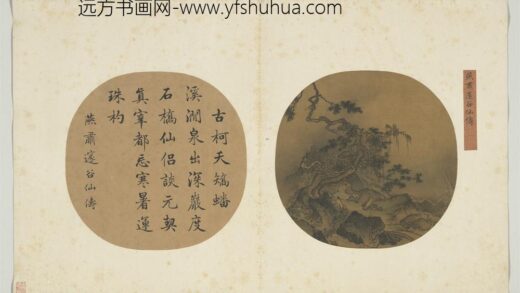 远方书画网-www.yfshuhua.com
燕肅邃谷仙儔
古柯夭矯蟠
溪澗泉出深巖度
石橋仙侶談元契
真宰都忘寒暑運
珠杓
燕肅邃谷仙儔